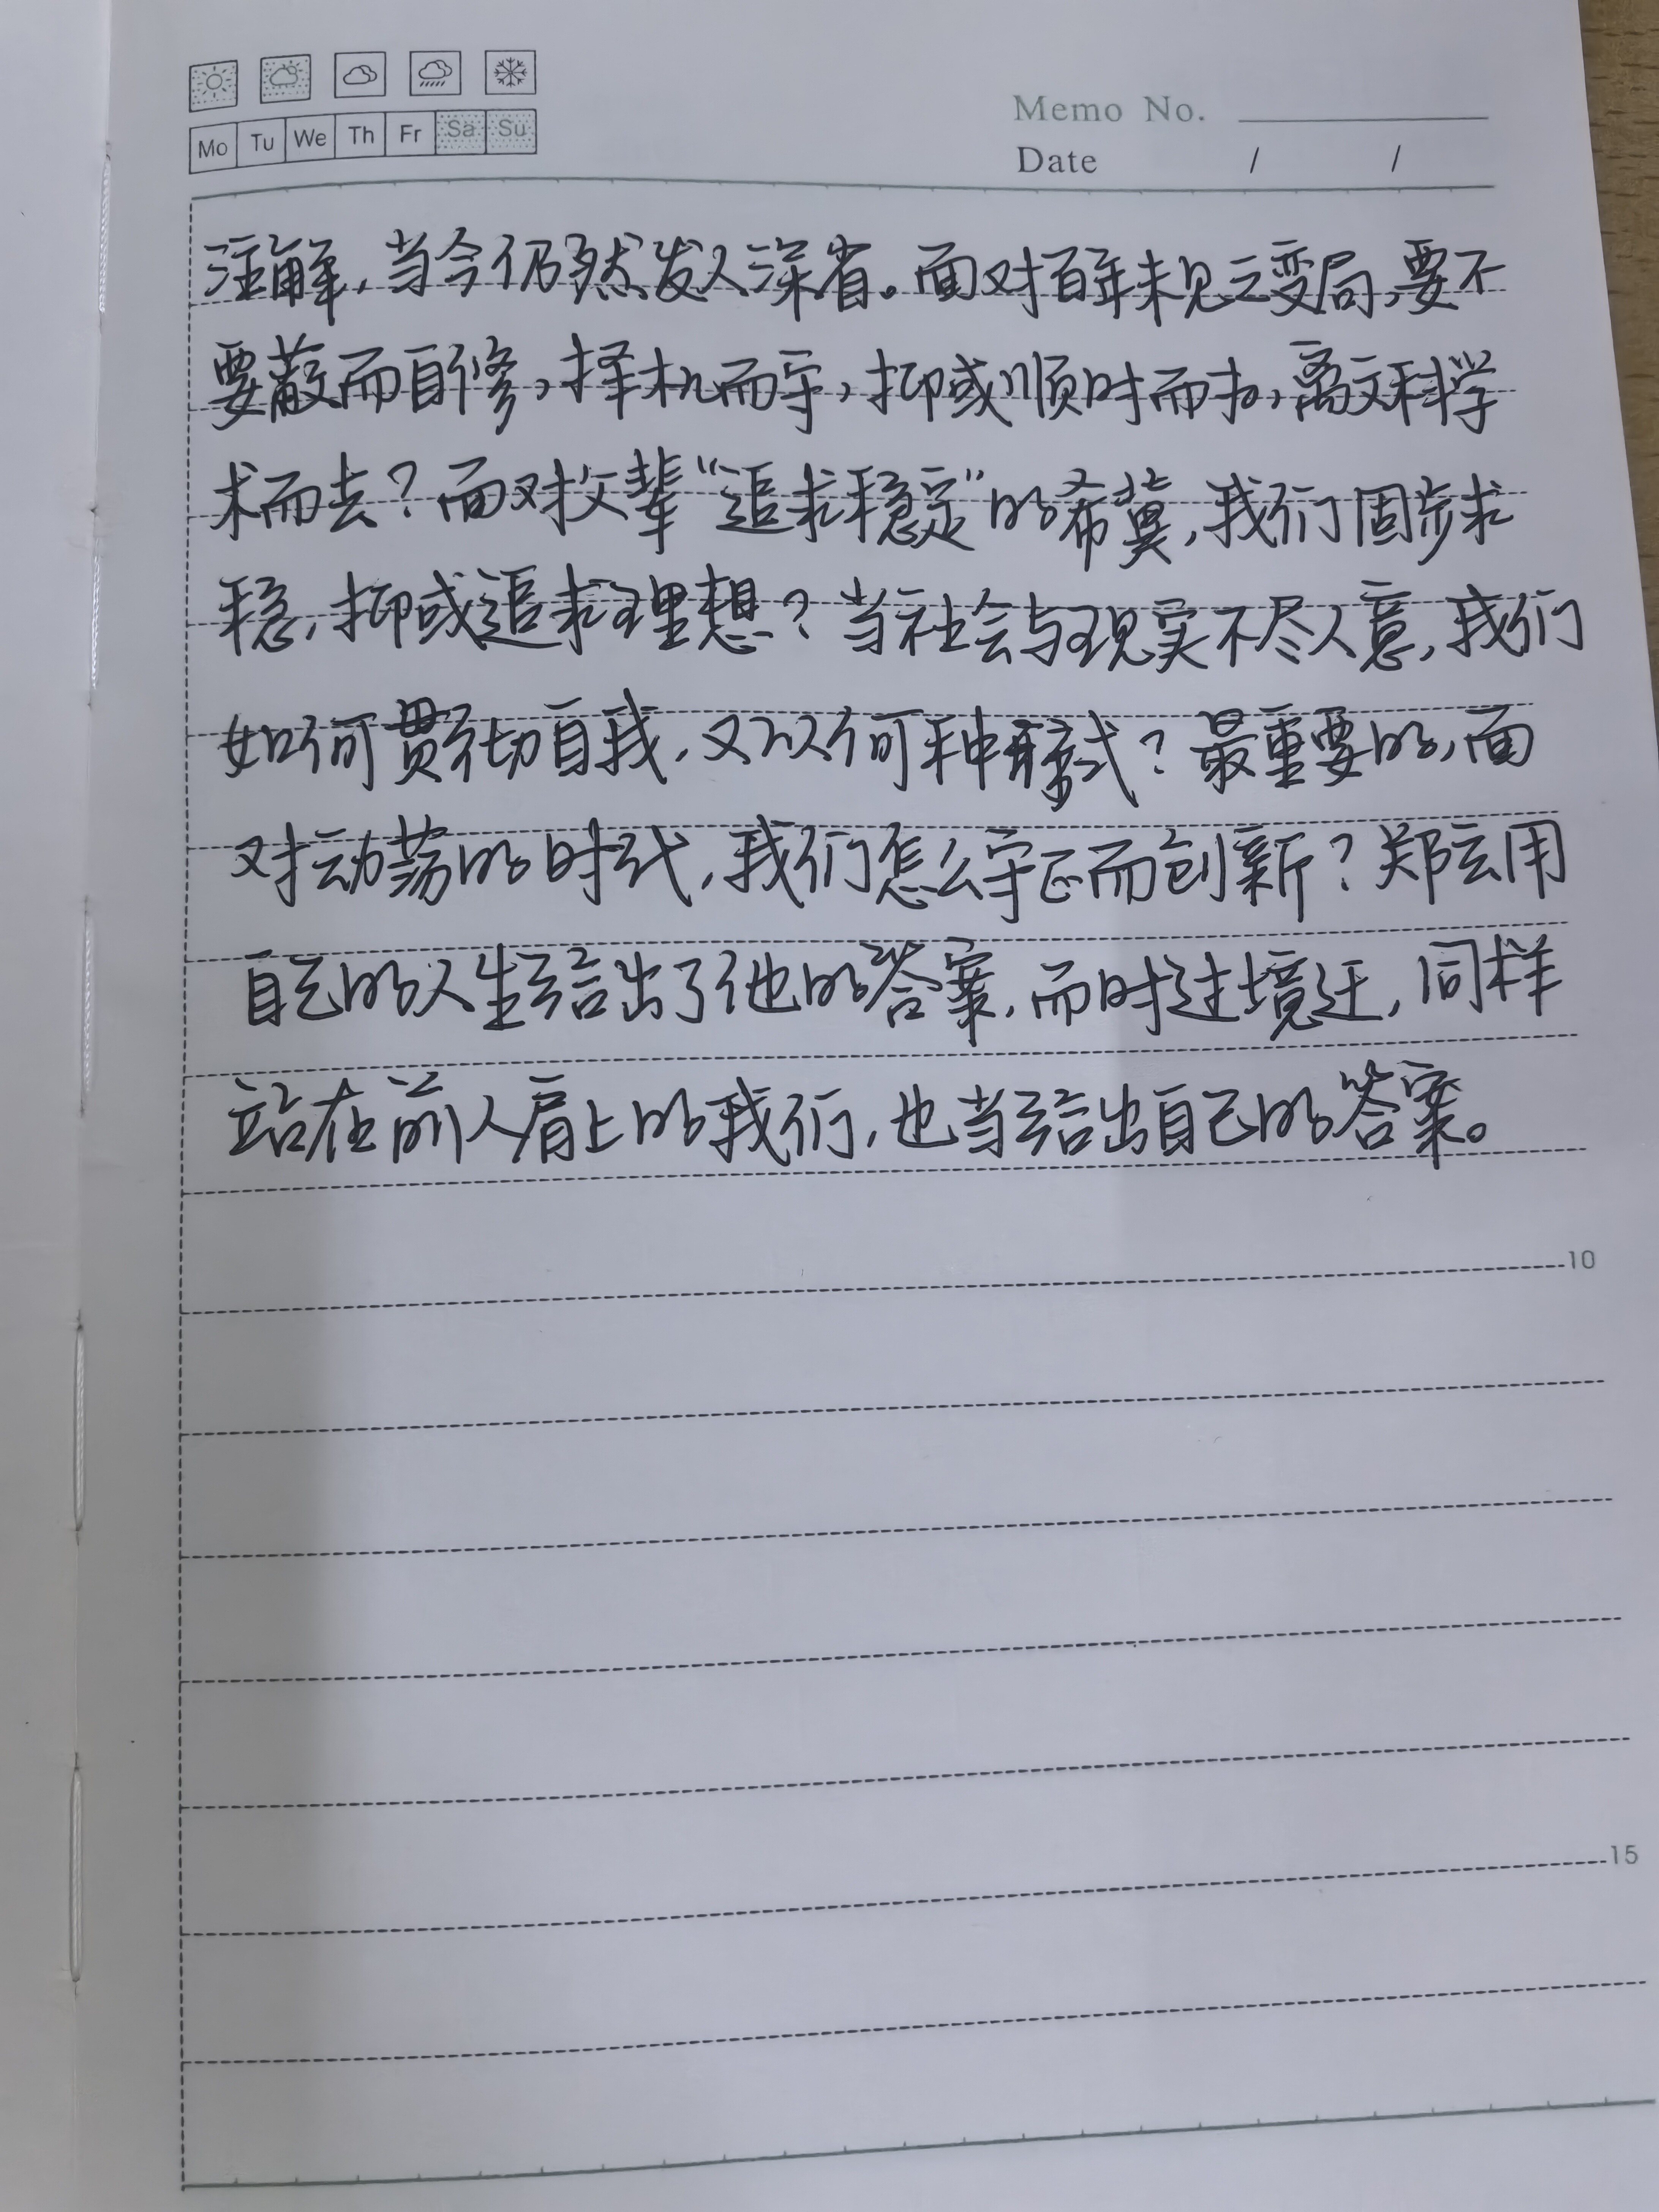 Mo Tu We Th Fr Sa Su
Memo No.
Date / /
注解,当今仍然发人深省。面对百年未见之变局,要不
要蔽而自修,择机而守,抑或顺时而为,离文科学
术而去?面对父辈“追求稳定”的希冀,我们固步求
稳,抑或追求理想?当社会与现实不尽人意,我们
如何贯彻自我,又以何种形式?最重要的,面
对动荡的时代,我们怎么守正而创新?郑玄用
自己的人生给出了他的答案,而时过境迁,同样
站在前人肩上的我们,也当给出自己的答案。
10
15